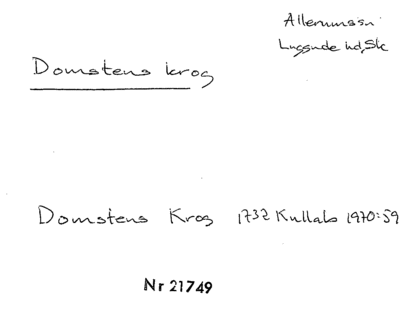 Allerums sn
Luggude hd, Sk
Domstens krog
Domstens Krog 1732 Kullab 1970:59
Nr 21749